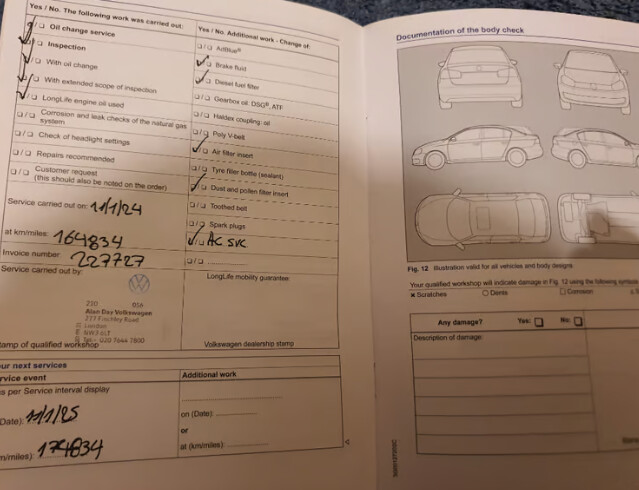 Yes / No. The following work was carried out:
Oil change service
Inspection
With oil change
With extended scope of inspection
LongLife engine oil used
Corrosion and leak checks of the natural gas system
Check of headlight settings
Repairs recommended
Customer request
(this should also be noted on the order)
Service carried out on: 11/1/24
at km/miles: 164834
Invoice number: 227727
Service carried out by:
Alan Day Volkswagen
Finchley Road
London
NW3 6LT
stamp of qualified workshop
Yes / No. Additional work - Change of:
AdBlue®
Brake fluid
Diesel fuel filter
Gearbox oil: DSG®, ATF
Haldex coupling: oil
Poly V-belt
Air filter insert
Tyre filler bottle (sealant)
Dust and pollen filter insert
Toothed belt
Spark plugs
AC SVC
LongLife mobility guarantee:
Volkswagen dealership stamp
our next services
Service event
as per Service interval display
(Date): 11/1/25
km/miles): 174834
Additional work
on (Date):
or
at (km/miles):
Documentation of the body check
Fig. 12 Illustration valid for all vehicles and body designs
Your qualified workshop will indicate damage in Fig. 12 using the following symbols
x Scratches O Dents □ Corrosion
Any damage? Yes: □ No: □
Description of damage: